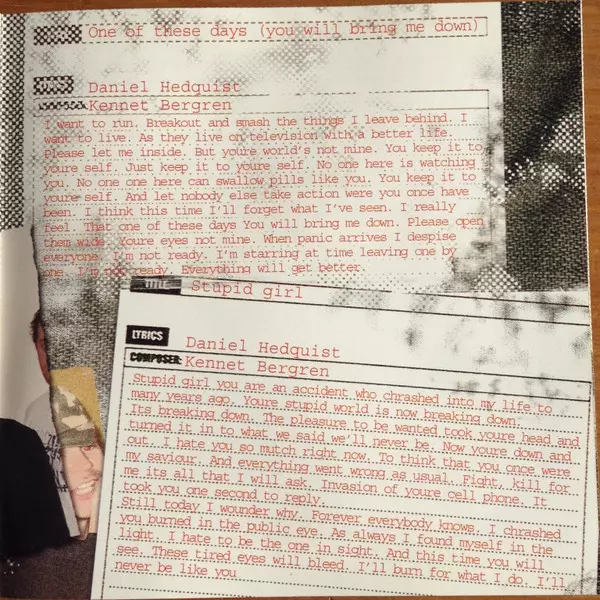 One of these days (you will bring me down)
Daniel Hedquist
Kennet Bergren
I want to run. Breakout and smash the things I leave behind. I
want to live. As they live on television with a better life.
Please let me inside. But youre world's not mine. You keep it to
youre self. Just keep it to youre self. No one here is watching
you. No one one here can swallow pills like you. You keep it to
youre self. And let nobody else take action were you once have
been. I think this time I'll forget what I've seen. I really
feel. That one of these days You will bring me down. Please open
them wide. Youre eyes not mine. When panic arrives I despise
everyone. I'm not ready. I'm starring at time leaving one by
one. I'm not ready. Everything will get better.
TITLE Stupid girl
LYRICS Daniel Hedquist
COMPOSER: Kennet Bergren
Stupid girl you are an accident who chrashed into my life to
many years ago. Youre stupid world is now breaking down.
Its breaking down. The pleasure to be wanted took youre head and
turned it in to what we said we'll never be. Now youre down and
out. I hate you so mutch right now. To think that you once were
my saviour. And everything went wrong as usual. Fight, kill for
me its all that I will ask. Invasion of youre cell phone. It
took you one second to reply.
Still today I wounder why. Forever everybody knows. I chrashed
you burned in the public eye. As always I found myself in the
light. I hate to be the one in sight. And this time you will
see. These tired eyes will bleed. I'll burn for what I do. I'll
never be like you